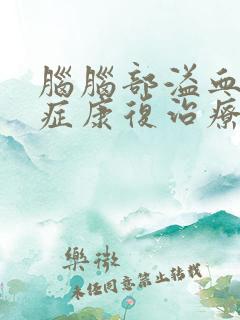 腦腦部溢血
症康復治療
樂微
未任同意禁止转载